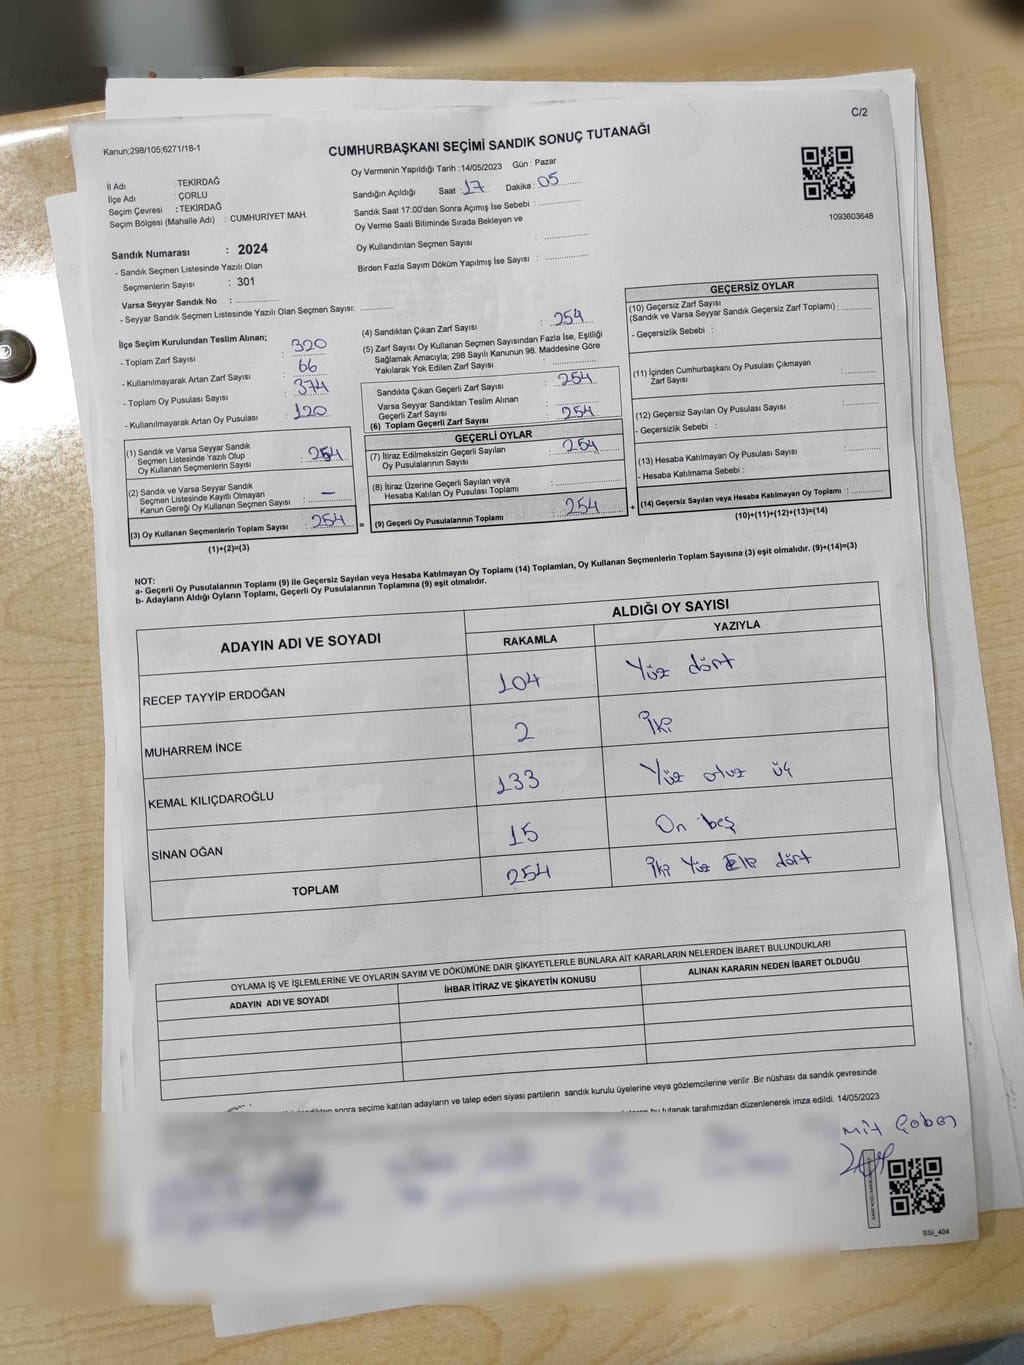 C/2
Kanun;298/105;6271/18-1
CUMHURBAŞKANI SEÇİMİ SANDIK SONUÇ TUTANAĞI
Oy Vermenin Yapıldığı Tarih :14/05/2023 Gün : Pazar
1093603648
İl Adı : TEKİRDAĞ
İlçe Adı : ÇORLU
Seçim Çevresi : TEKİRDAĞ
Seçim Bölgesi (Mahalle Adı) : CUMHURİYET MAH.
Sandığın Açıldığı Saat : 17 Dakika : 05
Sandık Saat 17:00'den Sonra Açımış İse Sebebi :
Oy Verme Saati Bitiminde Sırada Bekleyen ve
Oy Kullandırılan Seçmen Sayısı :
Birden Fazla Sayım Döküm Yapılmış İse Sayısı :
Sandık Numarası : 2024
- Sandık Seçmen Listesinde Yazılı Olan
Seçmenlerin Sayısı : 301
Varsa Seyyar Sandık No :
- Seyyar Sandık Seçmen Listesinde Yazılı Olan Seçmen Sayısı:
İlçe Seçim Kurulundan Teslim Alınan;
- Toplam Zarf Sayısı : 320
- Kullanılmayarak Artan Zarf Sayısı : 66
- Toplam Oy Pusulası Sayısı : 374
- Kullanılmayarak Artan Oy Pusulası : 120
(1) Sandık ve Varsa Seyyar Sandık
Seçmen Listesinde Yazılı Olup
Oy Kullanan Seçmenlerin Sayısı : 254
(2) Sandık ve Varsa Seyyar Sandık
Seçmen Listesinde Kayıtlı Olmayan
Kanun Gereği Oy Kullanan Seçmen Sayısı : —
(3) Oy Kullanan Seçmenlerin Toplam Sayısı : 254 =
(1)+(2)=(3)
(4) Sandıktan Çıkan Zarf Sayısı : 254
(5) Zarf Sayısı Oy Kullanan Seçmen Sayısından Fazla İse, Eşitliği
Sağlamak Amacıyla; 298 Sayılı Kanunun 98. Maddesine Göre
Yakılarak Yok Edilen Zarf Sayısı :
Sandıkta Çıkan Geçerli Zarf Sayısı : 254
Varsa Seyyar Sandıktan Teslim Alınan
Geçerli Zarf Sayısı :
(6) Toplam Geçerli Zarf Sayısı : 254
GEÇERLİ OYLAR
(7) İtiraz Edilmeksizin Geçerli Sayılan
Oy Pusulalarının Sayısı : 254
(8) İtiraz Üzerine Geçerli Sayılan veya
Hesaba Katılan Oy Pusulası Toplamı :
(9) Geçerli Oy Pusulalarının Toplamı : 254 +
GEÇERSİZ OYLAR
(10) Geçersiz Zarf Sayısı
(Sandık ve Varsa Seyyar Sandık Geçersiz Zarf Toplamı) :
- Geçersizlik Sebebi :
(11) İçinden Cumhurbaşkanı Oy Pusulası Çıkmayan
Zarf Sayısı :
(12) Geçersiz Sayılan Oy Pusulası Sayısı :
- Geçersizlik Sebebi :
(13) Hesaba Katılmayan Oy Pusulası Sayısı :
- Hesaba Katılmama Sebebi :
(14) Geçersiz Sayılan veya Hesaba Katılmayan Oy Toplamı :
(10)+(11)+(12)+(13)=(14)
NOT:
a- Geçerli Oy Pusulalarının Toplamı (9) ile Geçersiz Sayılan veya Hesaba Katılmayan Oy Toplamı (14) Toplamları, Oy Kullanan Seçmenlerin Toplam Sayısına (3) eşit olmalıdır. (9)+(14)=(3)
b- Adayların Aldığı Oyların Toplamı, Geçerli Oy Pusulalarının Toplamına (9) eşit olmalıdır.
ADAYIN ADI VE SOYADI ALDIĞI OY SAYISI
RAKAMLA YAZIYLA
RECEP TAYYİP ERDOĞAN 104 Yüz dört
MUHARREM İNCE 2 İki
KEMAL KILIÇDAROĞLU 133 Yüz otuz üç
SİNAN OĞAN 15 On beş
TOPLAM 254 İki Yüz Elli dört
OYLAMA İŞ VE İŞLEMLERİNE VE OYLARIN SAYIM VE DÖKÜMÜNE DAİR ŞİKAYETLERLE BUNLARA AİT KARARLARIN NELERDEN İBARET BULUNDUKLARI
ADAYIN ADI VE SOYADI İHBAR İTİRAZ VE ŞİKAYETİN KONUSU ALINAN KARARIN NEDEN İBARET OLDUĞU
sonra seçime katılan adayların ve talep eden siyasi partilerin sandık kurulu üyelerine veya gözlemcilerine verilir .Bir nüshası da sandık çevresinde
bu tutanak tarafımızdan düzenlenerek imza edildi. 14/05/2023
SSI_404